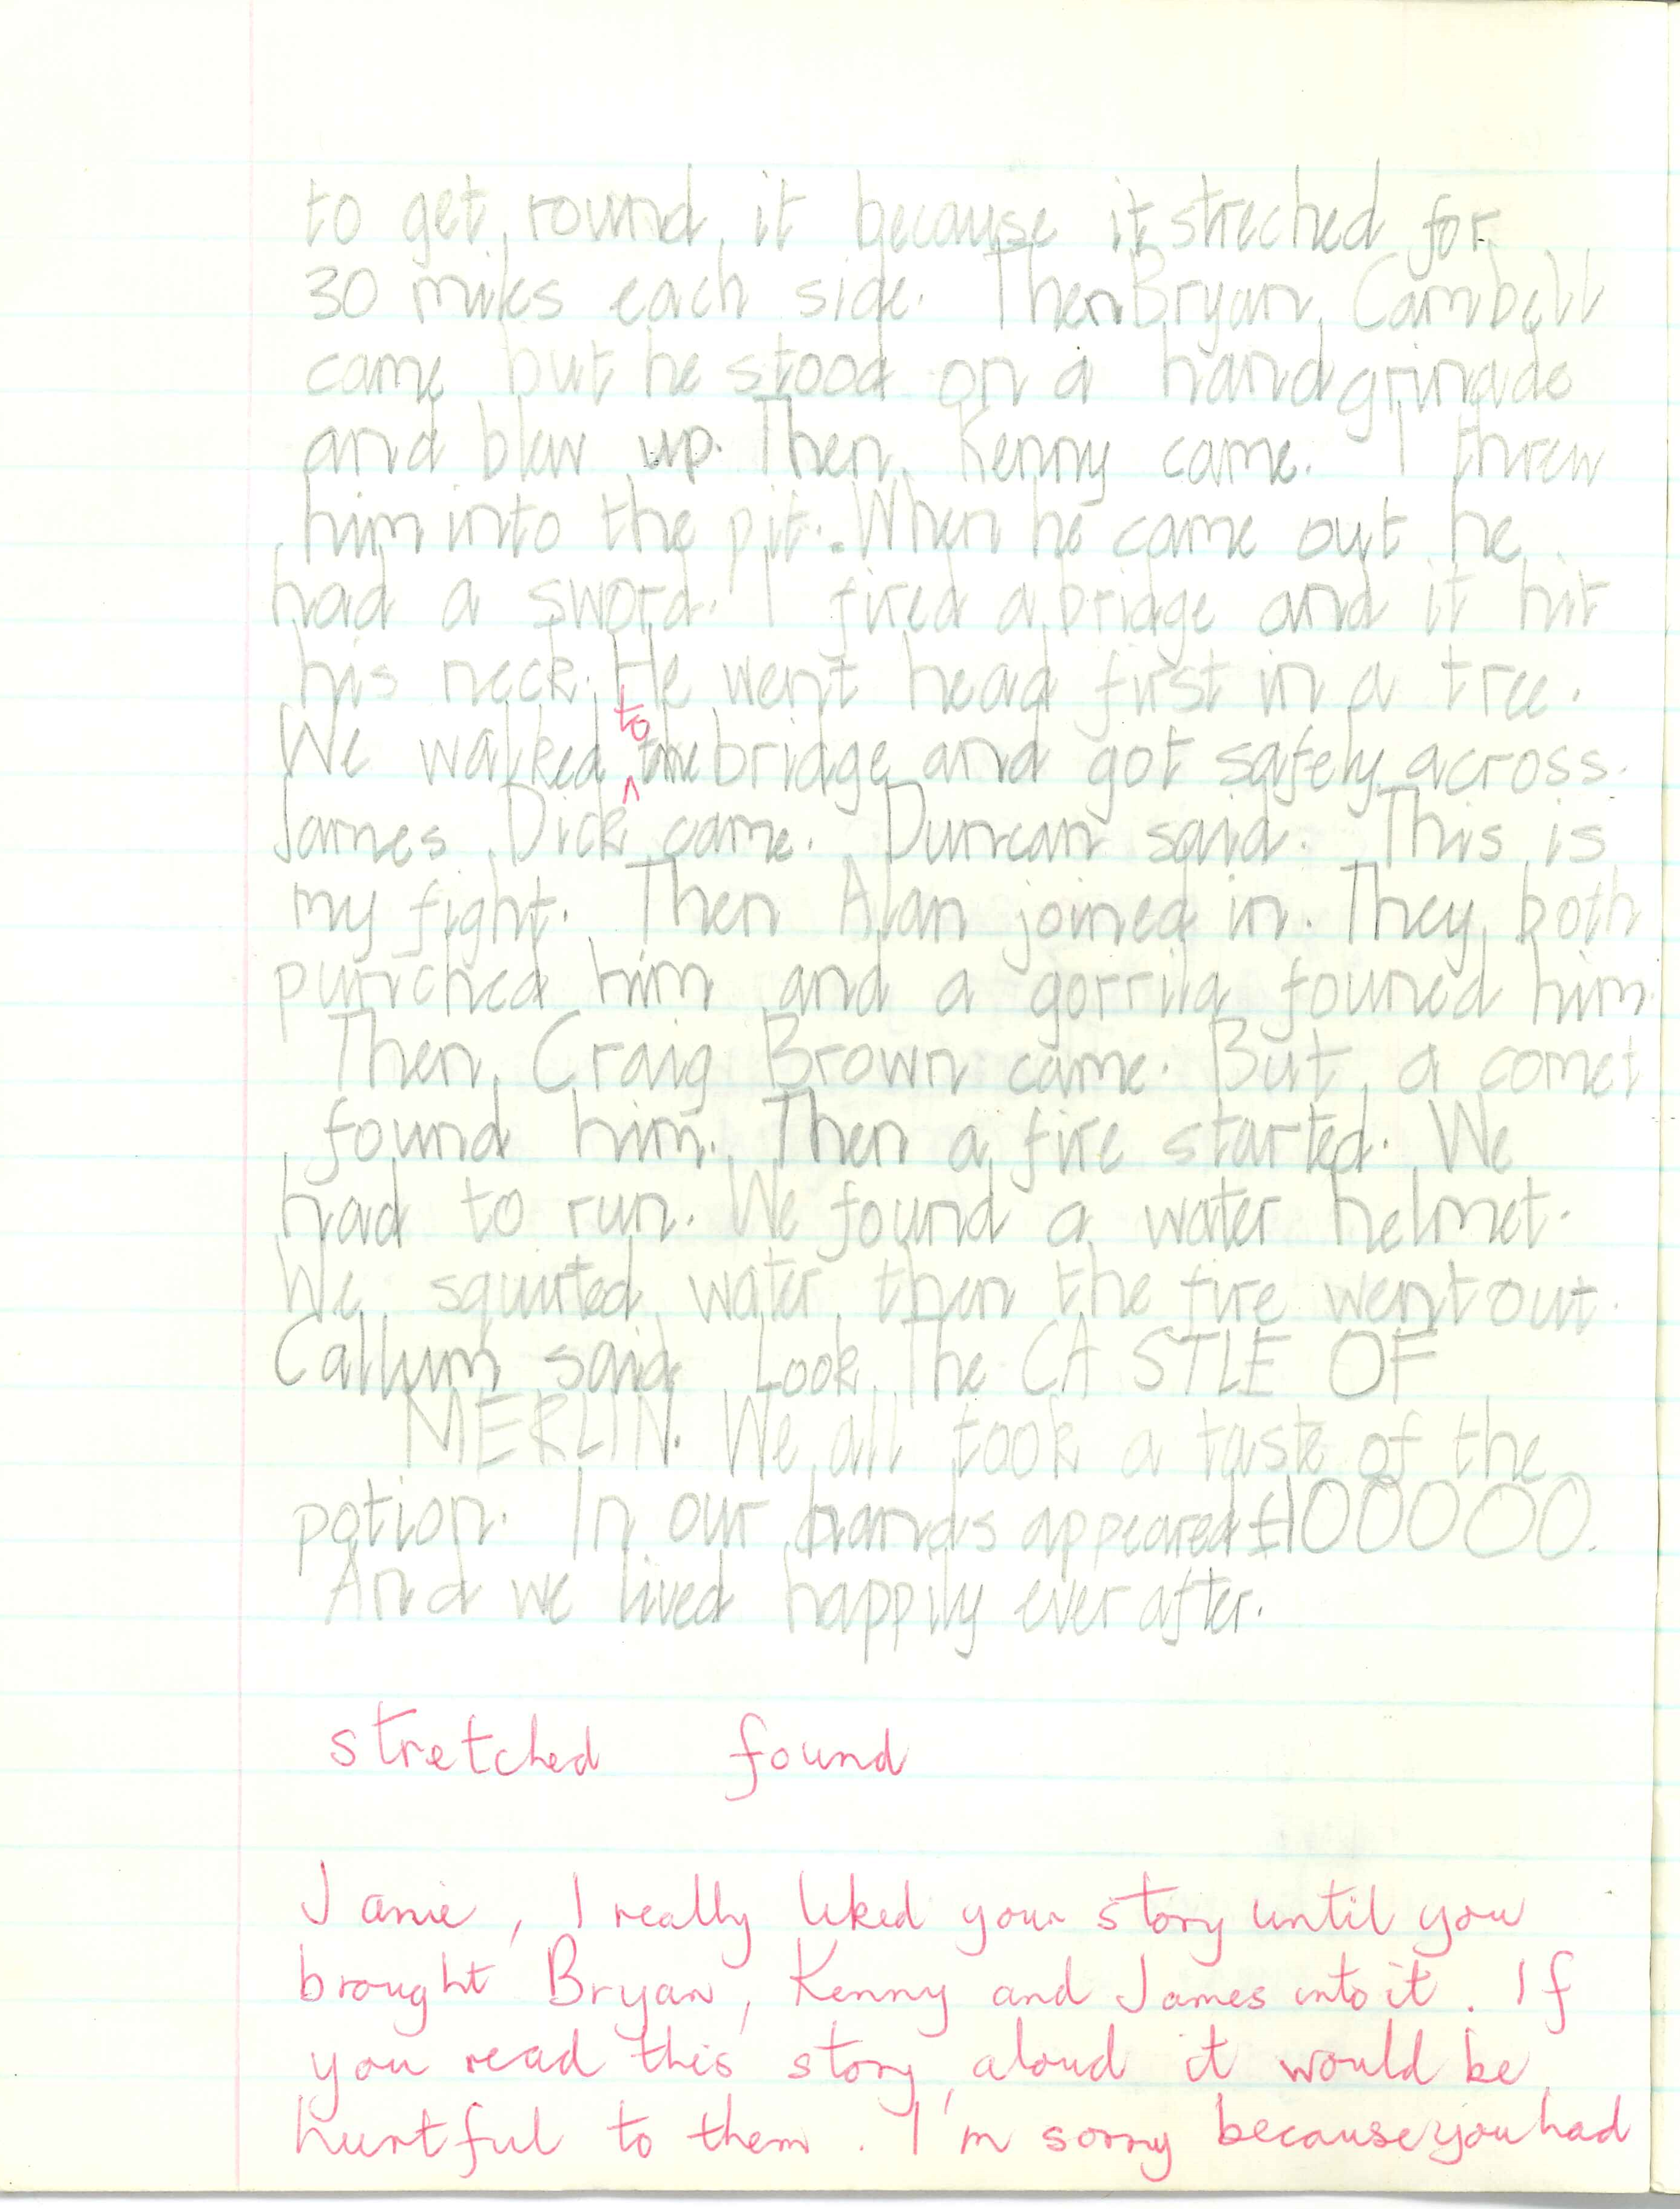 to get round it because it streched for
30 miles each side. Then Bryan Cambell
came but he stood on a hand grinade
and blew up. Then Kenny came. I threw
him into the pit. When he came out he
had a sword. I fired a bridge and it hit
his neck. He went head first in a tree.
to
We walked the bridge and got safely across.
James Dick came. Duncan said. This is
my fight. Then Alan joined in. They both
punched him and a gorrila founed him.
Then Craig Brown came. But a comet
found him. Then a fire started. We
had to run. We found a water helmet.
We squirted water then the fire went out.
Callum said Look The CASTLE OF
MERLIN. We all took a taste of the
potion. In our hands appeared £100000.
And we lived happily ever after.
stretched found
Jamie, I really liked your story until you
brought Bryan, Kenny and James into it. If
you read this story aloud it would be
hurtful to them. I'm sorry because you had